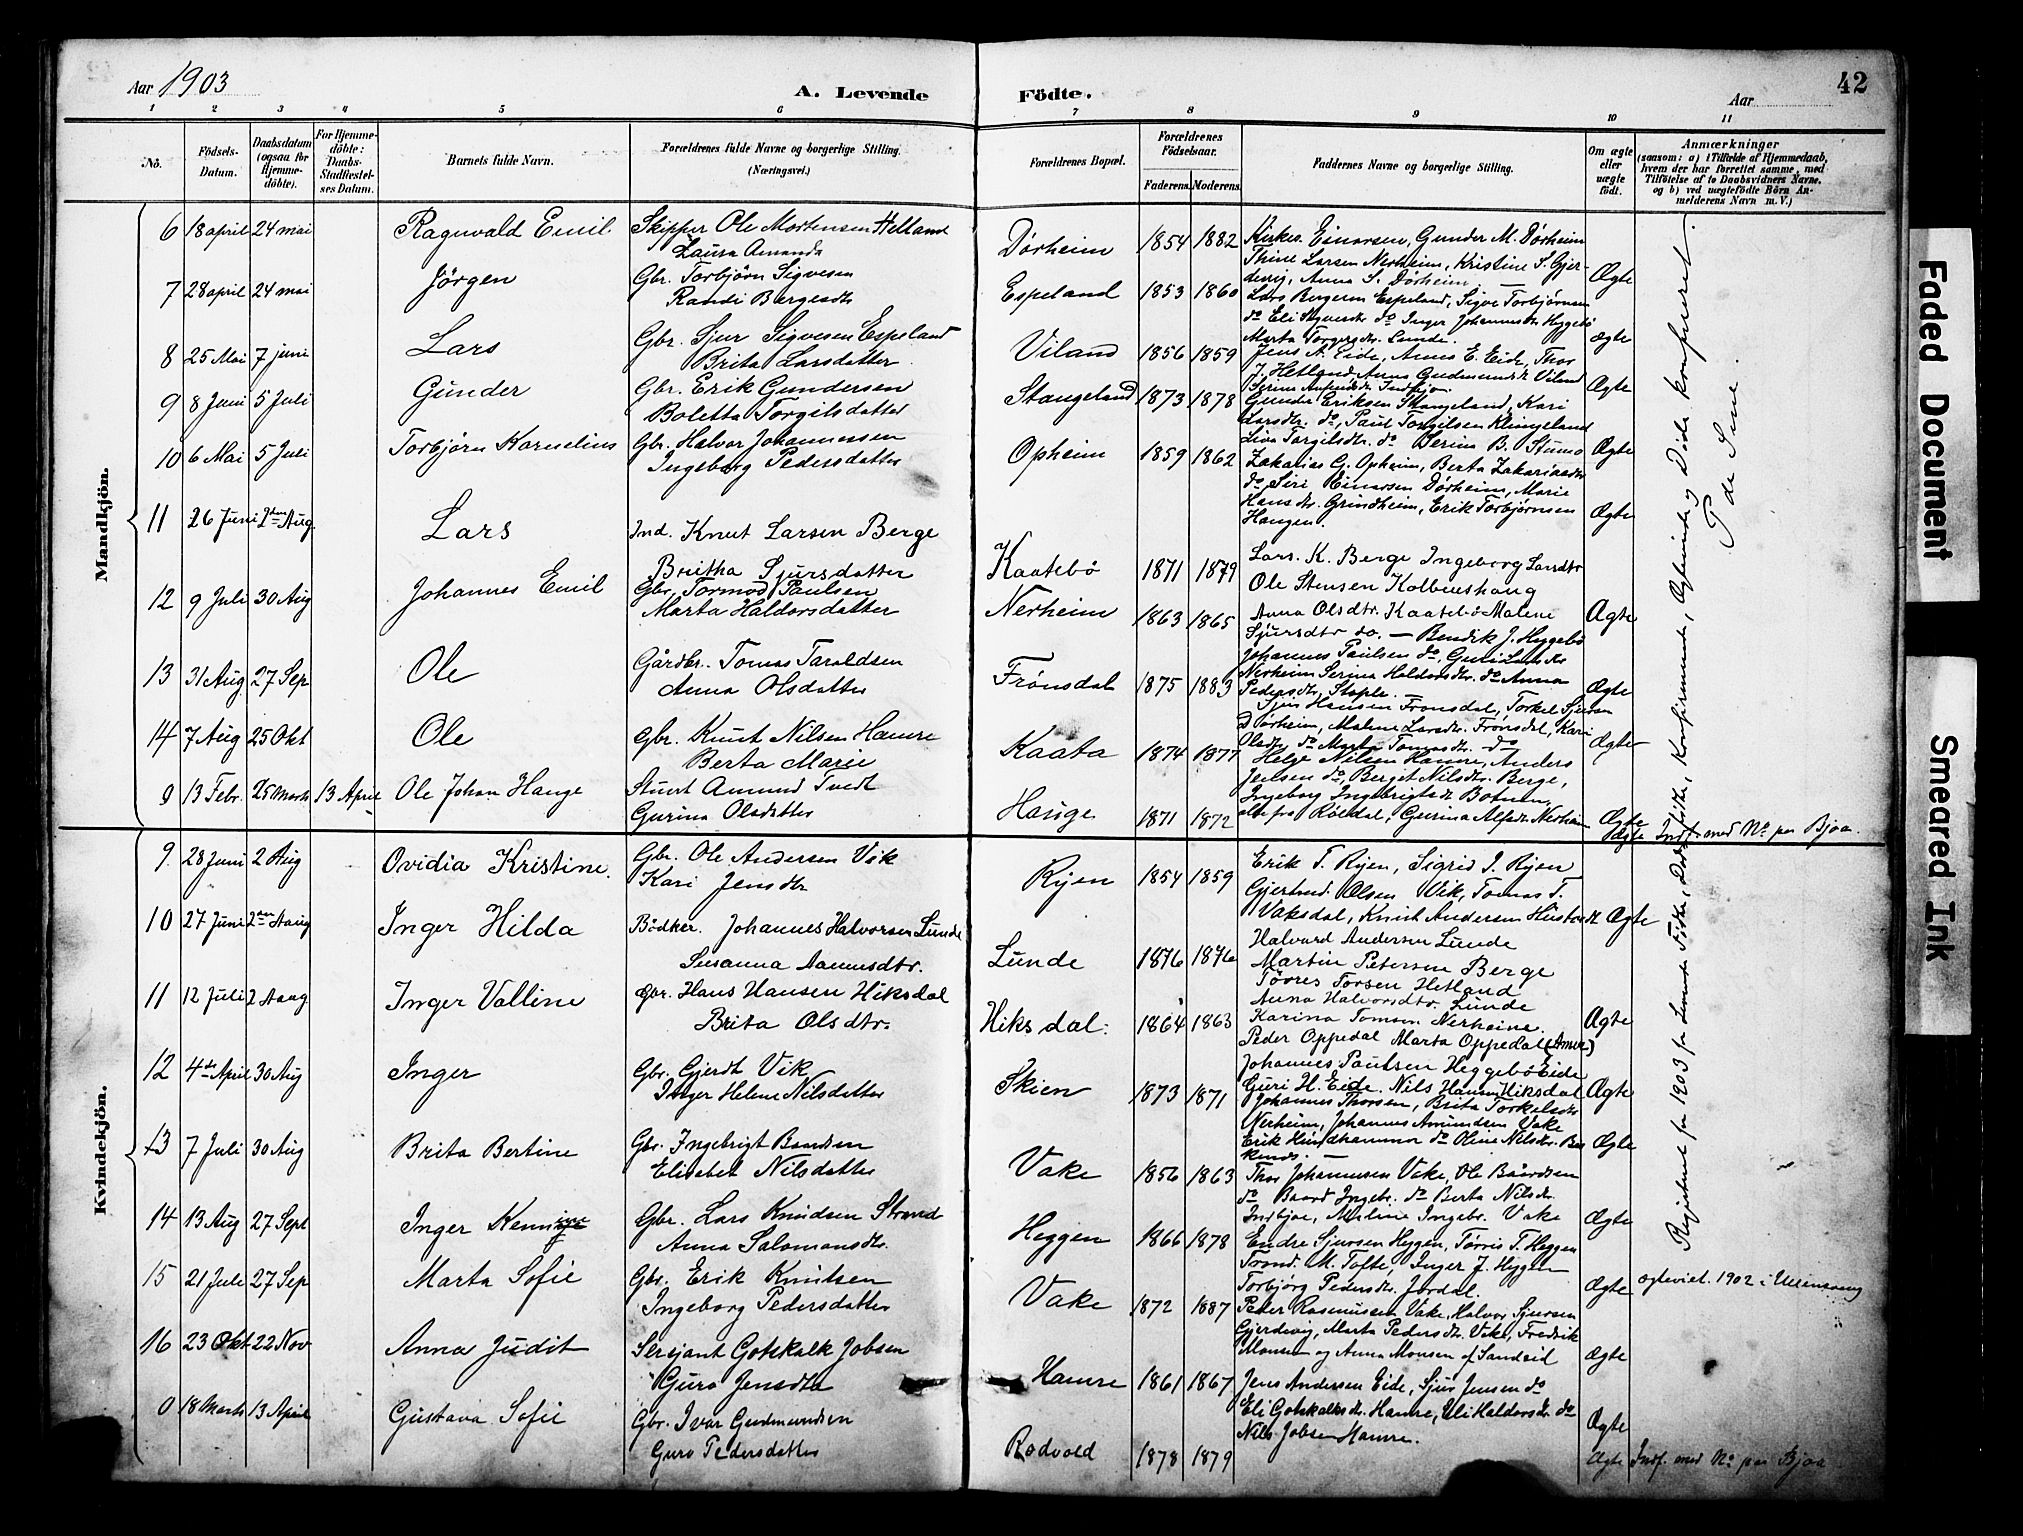 Aar 1903
A. Levende
Födte.
Aar
42
1 2 3 4 5 6 7 8 9 10 11
No.
Födsels-Datum.
Daabsdatum (ogsaa for Hjemme-döbte).
For Hjemme-döbte: Daabs-Stadfæstel-ses Datum.
Barnets fulde Navn.
Forældrenes fulde Navne og borgerlige Stilling. (Næringsvei.)
Forældrenes Bopæl.
Forældrenes Födselsaar.
Faderens.
Moderens.
Faddernes Navne og borgerlige Stilling.
Om ægte eller uægte födt.
Anmærkninger
(saasom: a) i Tilfælde af Hjemmedaab, hvem der har forrettet samme, med Tilföielse af to Daabsvidners Navne, og b) ved uægtefödte Börn An-melderens Navn m. V.)
Mandkjön.
6 18 april 24 mai Ragnvald Emil Skipper Ole Mortensen Helland
Laura Amanda Dørheim 1854 1882 Einarsen, Gunder M. Dørheim
Thine Larsen Nerheim, Kristine S. Gjer-
devig, Anna S. Dørheim Ægte
7 28 april 24 mai Jörgen Gbr. Torbjörn Sigvesen
Randi Bergesdtr Espeland 1853 1860
Lars Bergesen Espeland, Sigve Torbjørnsen
do Eli do Inger Johannesdtr Heggebö
Marta Torgersdtr. Lunde. ægte
8 25 Mai 7 juni Lars Gbr. Sjur Sigvesen Espeland
Brita Larsdatter Viland 1856 1859
Jens A. Eide, Annes E. Eide, Thor
J. Hetland Anna Gudmundsdt Viland Ægte
9 8 Juni 5 Juli Gunder Gbr. Erik Gundersen
Boletta Torgilsdatter Stangeland 1873 1878
Gunder Eriksen Stangeland, Kari
Larsdtr. do, Paul Torgilsen Klungeland
Liva Torgilsdtr. do Serina B. Stumo Ægte
10 6 Mai 5 Juli Torbjörn Kornelius Gbr. Halvor Johannessen
Ingeborg Pedersdatter Opheim 1859 1862
Zakarias G. Opheim, Berta Zakariasdtr
do, Siri Einarsen Dørheim, Marie
Hansdtr. Grindheim, Erik Torbjørnsen
Haugen. Ægte
11 26 Juni 2den Aug. Lars Ind. Knut Larsen Berge
Britha Sjursdatter Kaatebö 1871 1879
Lars. K. Berge Ingeborg Larsdtr
Ole Stensen Kolbeinshaug
Anna Olsdtr. Kaatebö Malene
Sjursdtr do. — Ægte
12 9 Juli 30 Aug Johannes Emil Gbr. Tormod Paulsen
Marta Haldorsdatter Nerheim 1863 1865
Bendik J. Heggebö
Johannes Paulsen do, Guri Larsdtr
Nerheim Serina Haldorsdtr. do Anna
Pedersdtr, Støple. Ægte
13 31 Aug. 27 Sep Ole Gårdbr. Tomas Taraldsen
Anna Olsdatter Frönsdal 1875 1883
Sjur Hansen Frønsdal, Torkel Sjursen
Dørheim, Malene Larsdtr. Frønsdal, Kari
Olsdtr do Marta Tomasdtr. do Ægte
14 7 Aug 25 Okt Ole Gbr. Knut Nilsen Hamre
Berta Marie Kaata 1874 1877
Helge Nilsen Hamre, Anders
Jensen do, Berget Nilsdtr. Berge,
Ingeborg Ingebrigtsdt Botnen,
9 13 Febr. 25 Marts 13 April Ole Johan Hauge Stuert Amund Tvedt
Gurina Olsdatter Hauge 1871 1872
alle fra Röldal, Gurina Alfsdtr Nerheim Ægte
Uægte Indf. med No. paa Bjoa
Kvindekjön.
9. 28 Juni 2 Aug Ovidia Kristine. Gbr. Ole Andersen Vik
Kari Jensdtr Ryen 1854 1859
Erik T. Ryen, Sigrid J. Ryen
Gjertrud Olsen Vik, Tomas T.
Vaksdal, Knut Andersen Hustvedt Ægte
10 27 Juni 2den Aaug Inger Hilda Bödker. Johannes Halvorsen Lunde
Susanna Aanensdtr. Lunde 1876 1876
Halvard Andersen Lunde
Martin Petersen Berge
Tørres Torsen Hetland
Anna Halvorsdtr. Lunde
Karina Tomsen Nerheine. Ægte
11 12 Juli 2 Aaug Inger Valline Gbr. Hans Hansen Hiksdal
Brita Olsdtr. Hiksdal. 1864 1863
Peder Oppedal Marta Oppedal (Amer)
Johannes Paulsen Heggebö Eide
Guri H. Eide. Nils Hansen Hiksdal Ægte
12 4de April 30 Aug Inger Gbr. Gjerdt Vik
Inger Helene Nilsdatter Skien 1873 1871
Johannes Thorsen, Brita Torkelsdtr
Nerheim, Johannes Amundsen Vake
Erik Hundhammer do Oline Nilsdtr. Ægte
13 7 Juli 30 Aug Brita Bertine Gbr. Ingebrigt Baardsen
Elisabet Nilsdatter Vake 1856 1863
Thor Johannesen Vake, Ole Baardsen
do Baard Ingebr. do Berta Nilsdtr.
Indbjoe, Malina Ingebr. Vake Ægte
14 13 Aug 27 Sept Inger Gbr. Lars Knudsen Strand
Anna Salomonsdtr. Heggen 1866 1878
Endre Sjursen Heggen, Tørris T. Heggen
Trond. M. Tofte, Inger J. Heggen
Torbjörg Pedersdtr. Jordal. Ægte
15 21 Juli 27 Sep Marta Sofie Gbr. Erik Knutsen
Ingeborg Pedersdatter Vake 1872 1887
Peder Rasmussen Vake, Halvor Sjursen
Gjerdevig, Marta Pedersdtr. Vake, Fredrik
Monsen og Anna Monsen af Sandeid Ægte
ægteviet. 1902 i Ullensvang
16 23 Okt 22 Nov Anna Judit Sersjant Gotskalk Jobsen
Guro Jensdtr Hamre 1861 1867
Jens Andersen Eide, Sjur Jensen do
Eli Gotskalksdtr. Hamre, Eli Haldorsdtr. do
Nils Jobsen Hamre. Ægte
0 18 Marts 13 April Gustava Sofie Gbr. Ivar Gudmundsen
Guro Pedersdatter Rodvold 1878 1879 Ægte Indf. med No. paa Bjoa
Registret for 1903 for Levende Födte, Dødfödte, Konfirmerede, Ægteviede og Døde konfereret.
Faded Document
Smeared Ink